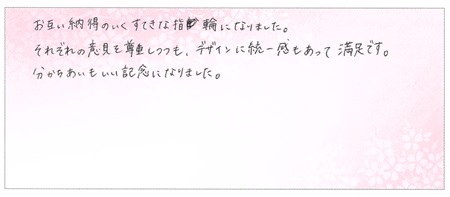 お互い納得のいくすてきな指輪になりました。
それぞれの意見を尊重しつつも、デザインに統一感もあって満足です。
分かちあいもいい記念になりました。